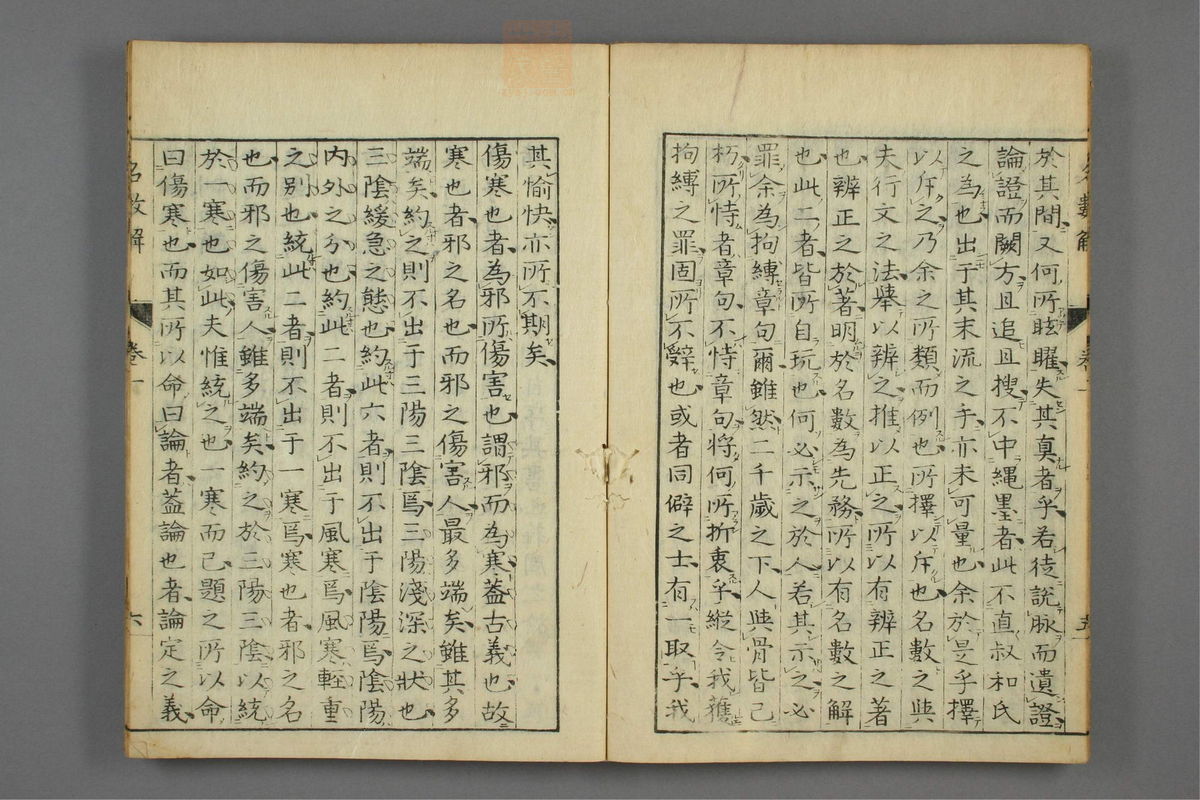 於其間又何所眩曜失其真者乎若徒說脉而遺證
論證而闕方且追且搜不中縄墨者此不直叔和氏
之為也出于其末流之手亦未可量也余於是乎擇
以斥之乃余之所類而例也所擇以斥也名數之與
夫行文之法舉以辨之推以正之所以有辨正之著
也辨正之於著明於名數為先務所以有名數之解
也此二者皆所自玩也何必示之於人若其示之必
罪余為拘縛章句爾雖然二千歲之下人與骨皆已
朽所恃者章句不恃章句將何所折衷乎縱令我獲
拘縛之罪固所不辭也或者同僻之士有一取乎我
名數解
卷一
五
其愉快亦所不期矣
傷寒也者為邪所傷害也謂邪而為寒蓋古義也故
寒也者邪之名也而邪之傷害人最多端矣雖其多
端矣約之則不出于三陽三陰焉三陽淺深之狀也
三陰緩急之態也約此六者則不出于陰陽焉陰陽
內外之分也約此二者則不出于風寒焉風寒輕重
之別也統此二者則不出于一寒焉寒也者邪之名
也而邪之傷害人雖多端矣約之於三陽三陰以統
於一寒也如此夫惟統之也一寒而已題之所以命
曰傷寒也而其所以命曰論者蓋論也者論定之義
名數解
卷一
六